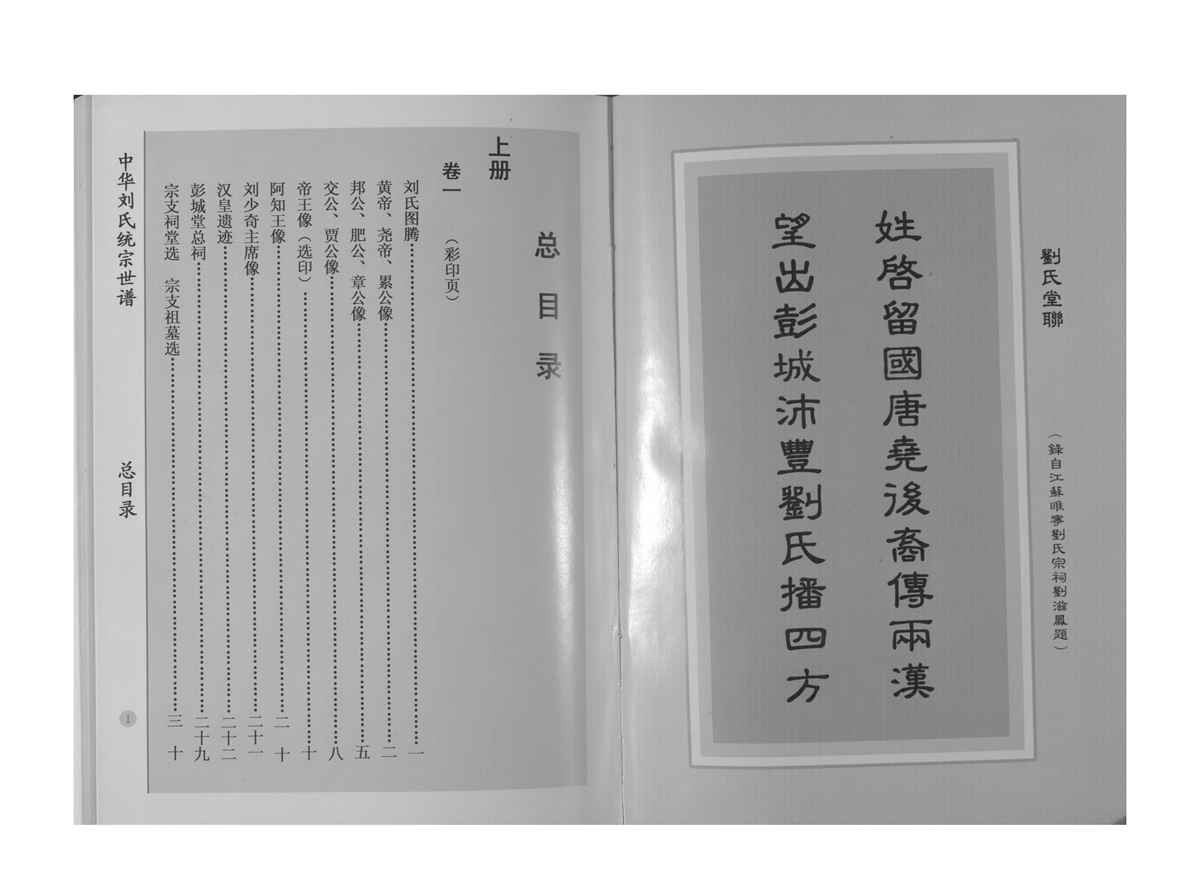 劉氏堂聯
（錄自江蘇睢寧劉氏宗祠劉滋鳳題）
姓啓留國唐堯後裔傳兩漢
望出彭城沛豐劉氏播四方
总目录
上册
卷一 （彩印页）
刘氏图腾……一
黄帝、尧帝、累公像……二
邦公、肥公、章公像……五
交公、贾公像……八
帝王像（选印）……十
阿知王像……二十
刘少奇主席像……二十一
汉皇遗迹……二十二
彭城堂总祠……二十九
宗支祠堂选 宗支祖墓选……三十
中华刘氏统宗世谱
总目录
1